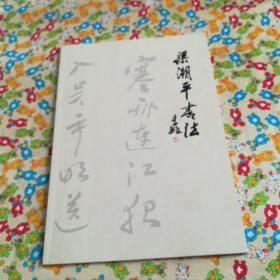 梁潮平书法
寒雨连江夜
入吴平明送